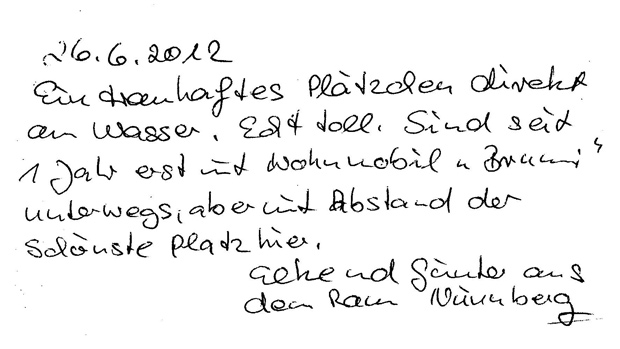 26.6.2012
Ein traumhaftes Plätzchen direkt
am Wasser. Echt toll. Sind seit
1 Jahr erst mit Wohnmobil "
unterwegs, aber mit Abstand der
schönste Platz hier.
Günter aus
dem Raum Nürnberg